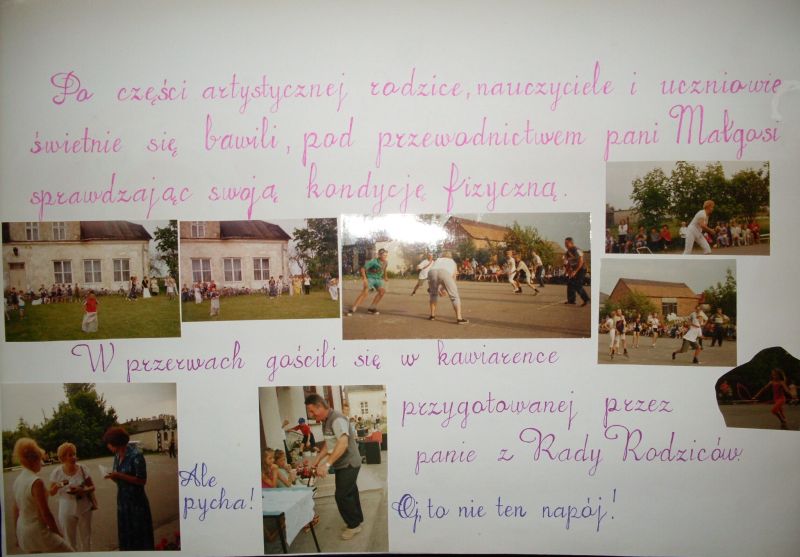 Po części artystycznej rodzice, nauczyciele i uczniowie
świetnie się bawili, pod przewodnictwem pani Małgosi
sprawdzając swoją kondycję fizyczną.
W przerwach gościli się w kawiarence
przygotowanej przez
panie z Rady Rodziców.
Ale
pycha!
Oj, to nie ten napój!